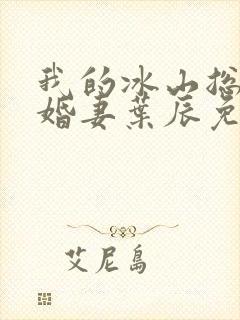 我的冰山总
婚妻葉辰免
艾尼島